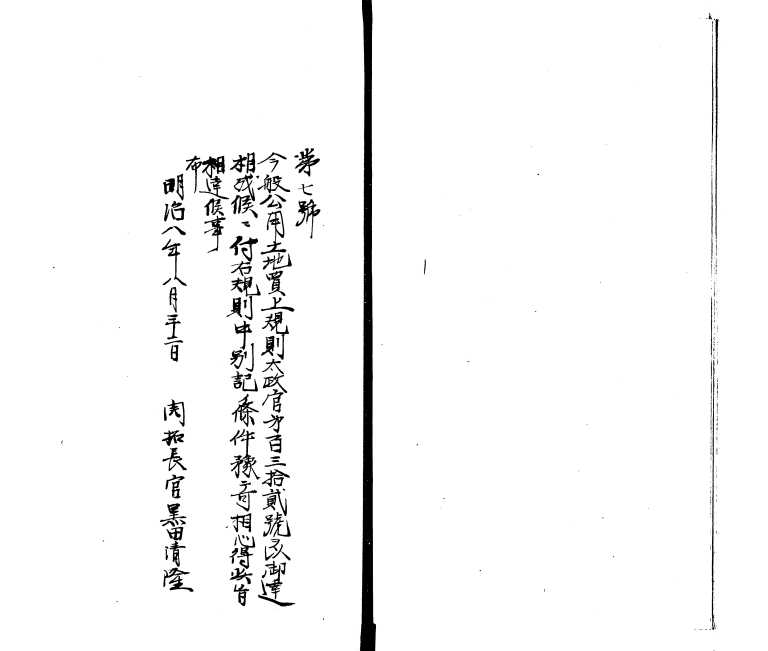 第七號
今般公用土地買上規則太政官第百三拾貳號以御達
相成候ニ付右規則中別記條件豫テ可相心得此旨
相達候事
布
明治八年八月三十一日 開拓長官黒田清隆